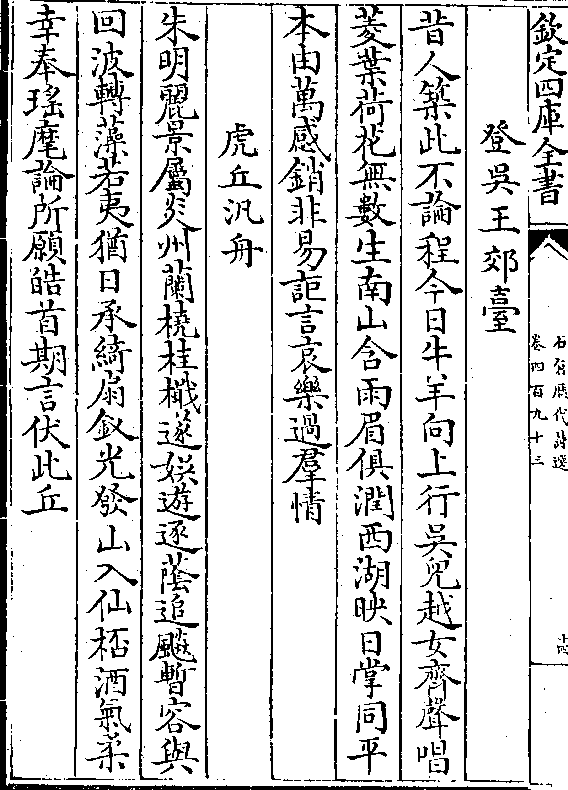 欽定四庫全書
石倉歷代詩選
卷四百九十三
登吳王郊臺
昔人築此不論程今日牛羊向上行吳兒越女齊聲唱
菱葉荷花無數生南山含雨眉俱潤西湖映日掌同平
本由萬感銷非易詎言哀樂過羣情
虎丘汎舟
朱明麗景屬炎州蘭橈桂檝遂娱遊逐蔭追飈暫容與
回波轉藻若夷猶日承綺扇釵光發山入仙桮酒氣柔
幸奉瑤麾論所願皓首期言伏此丘